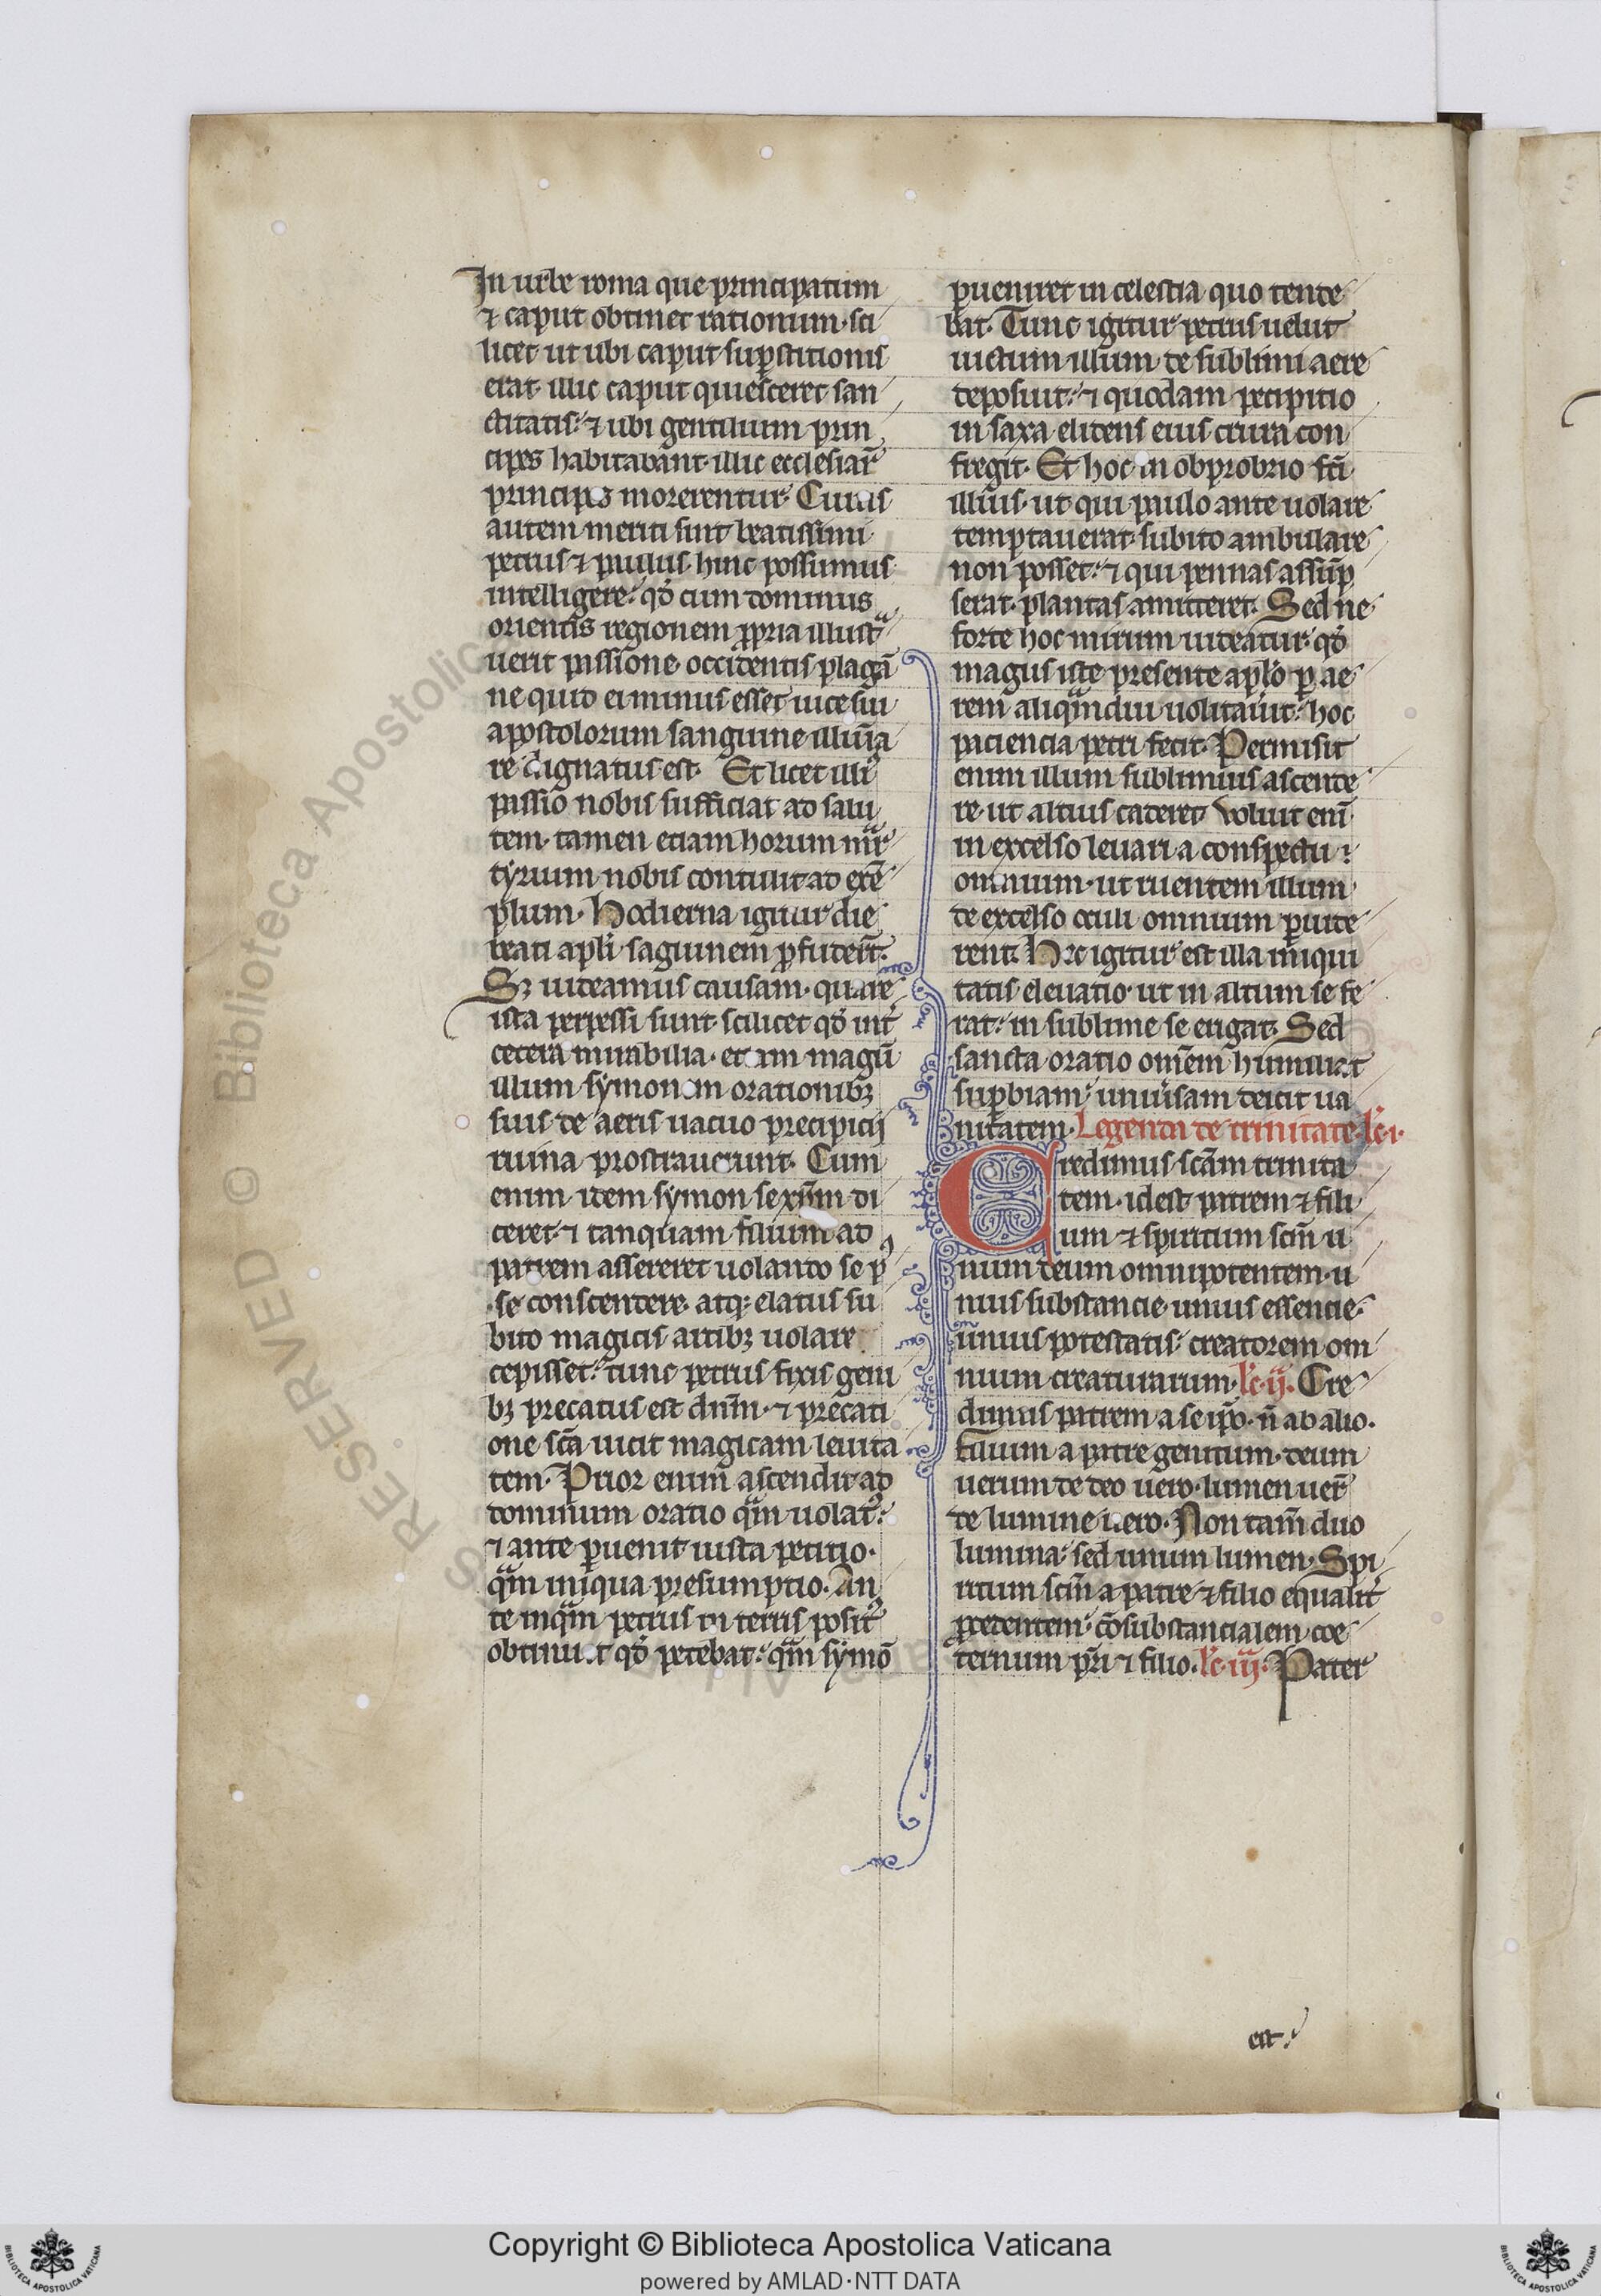 In urbe roma que principatum
⁊ caput obtinet nationum· sci
licet ut ubi caput supstitionis
erat illic caput quiesceret san
ctitatis· ⁊ ubi gentilium prin
cipes habitabant· illic ecclesiaꝝ
principes morerentur Cuius
autem meriti sint beatissimi
petrus ⁊ paulus hinc possumus
intelligere· qď cum dominus
orientis regionem ꝓpria illustͣ
uerit passione· occidentis plagā
ne quid ei minus esset uice sui
apostolorum sanguine illumīa
re dignatus est· Et licet illiꝰ
passio nobis sufficiat ad salu
tem· tamen etiam horum mͣr
tyrium nobis contulit ad exē
plum· Hodierna igitur die
beati apli saguinem ꝓfuderūt·
Sꝫ uideamus causam· quare
ista perpessi sunt· scilicet qď int̄
cetera mirabilia· etiam magū
illum symonem orationibꝫ
suis de aeris uacuo precipicij
ruina prostrauerunt· Cum
enim idem symon se xp̄m di
ceret· ⁊ tanquam filium ad
patrem assereret uolando se ꝑ
se conscendere· atqꝫ elatus su
bito magicis artibꝫ uolare
cepisset· tunc petrus fixis geni
bꝫ precatus est dn̄m· ⁊ precati
one sc̄a uicit magicam leuita
tem· Prior enim ascendit ad
dominum oratio qͣm uolatꝰ·
⁊ ante ꝑuenit iusta petitio·
qͣm iniqua presumptio· An
te inqͣm petrus in terris positꝰ
obtinuit qď petebat· qͣm symō
ꝑueniret in celestia quo tende
bat· Tunc igitur petrus uelut
uictum illum de sublimi aere
deposuit· ⁊ quodam pcipitio
in saxa elidens eius crura con
fregit· Et hoc in obprobrio fc̄i
illius· ut qui paulo ante uolare
temptauerat· subito ambulare
non posset· ⁊ qui pennas assūp
serat· plantas amitteret· Sed ne
forte hoc mirum uideatur· qď
magus iste presente aplo ꝑ ae
rem aliqͣmdiu uolitauit· hoc
paciencia petri fecit· Permisit
enim illum sublimius ascende
re· ut altius caderet· Voluit enī
in excelso leuari a conspectu
omnium· ut ruentem illum
de excelso oculi omnium ꝑuide
rent· Hec igitur est illa iniqui
tatis eleuatio· ut in altum se fe
rat· in sublime se erigat· Sed
sancta oratio om̄em humiliat
supbiam· uniūsam deicit ua
nitatem· Legenda de trinitate· lc̄·i·
Credimus scām trinita
tem· id est patrem ⁊ fili
um ⁊ spiritum scm̄ u
num deum omnipotentem· u
nius substancie· unius essencie·
unius potestatis· creatorem om
nium creaturarum· lc̄·ij· Cre
dimus patrem a se ip̄o· n̄ ab alio·
filium a patre genitum· deum
uerum de deo uero· lumen ueꝝ
de lumine uero· Non tam̄ duo
lumina· sed unum lumen· Spi
ritum scm̄ a patre ⁊ filio equalit̄
ꝓcedentem· cōsubstancialem coe
ternum pr̄i ⁊ filio· lc̄·iij· Pater
est·
Copyright © Biblioteca Apostolica Vaticana
powered by AMLAD·NTT DATA